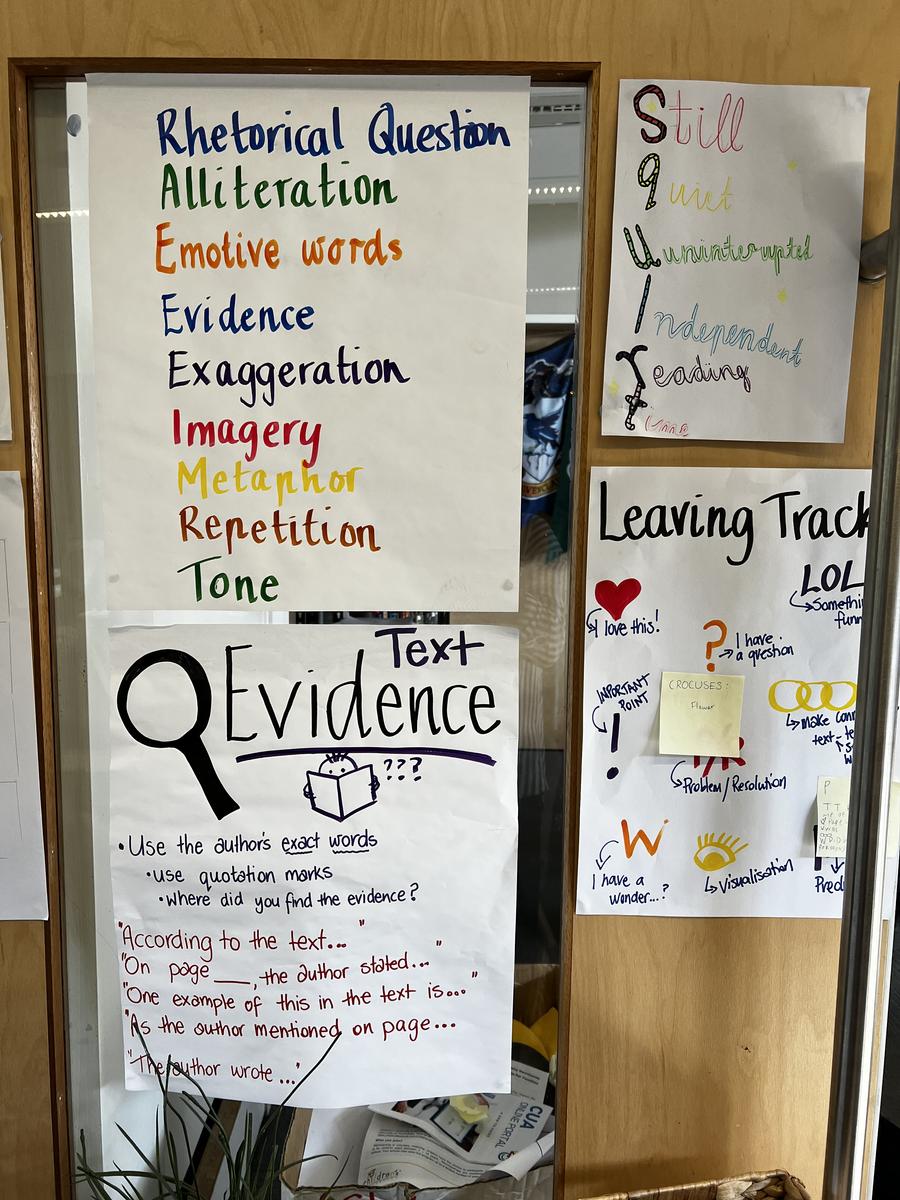 Rhetorical Question
Alliteration
Emotive words
Evidence
Exaggeration
Imagery
Metaphor
Repetition
Tone
Text
Evidence
???
•Use the author's exact words
•use quotation marks
•Where did you find the evidence?
"According to the text... "
"On page ___, the author stated... "
"One example of this in the text is..."
"As the author mentioned on page...
"The author wrote ..."
Still
quiet
uninterrupted
Independent
reading
time
Leaving Track
I love this!
LOL
Somethi
funn
?
I have
a question
IMPORTANT
POINT
!
CROCUSES:
Flower
make conn
text-te
P/R
Problem/Resolution
W
I have a
wonder...?
Visualisation
Pred
CUA
ONLINE PORTAL